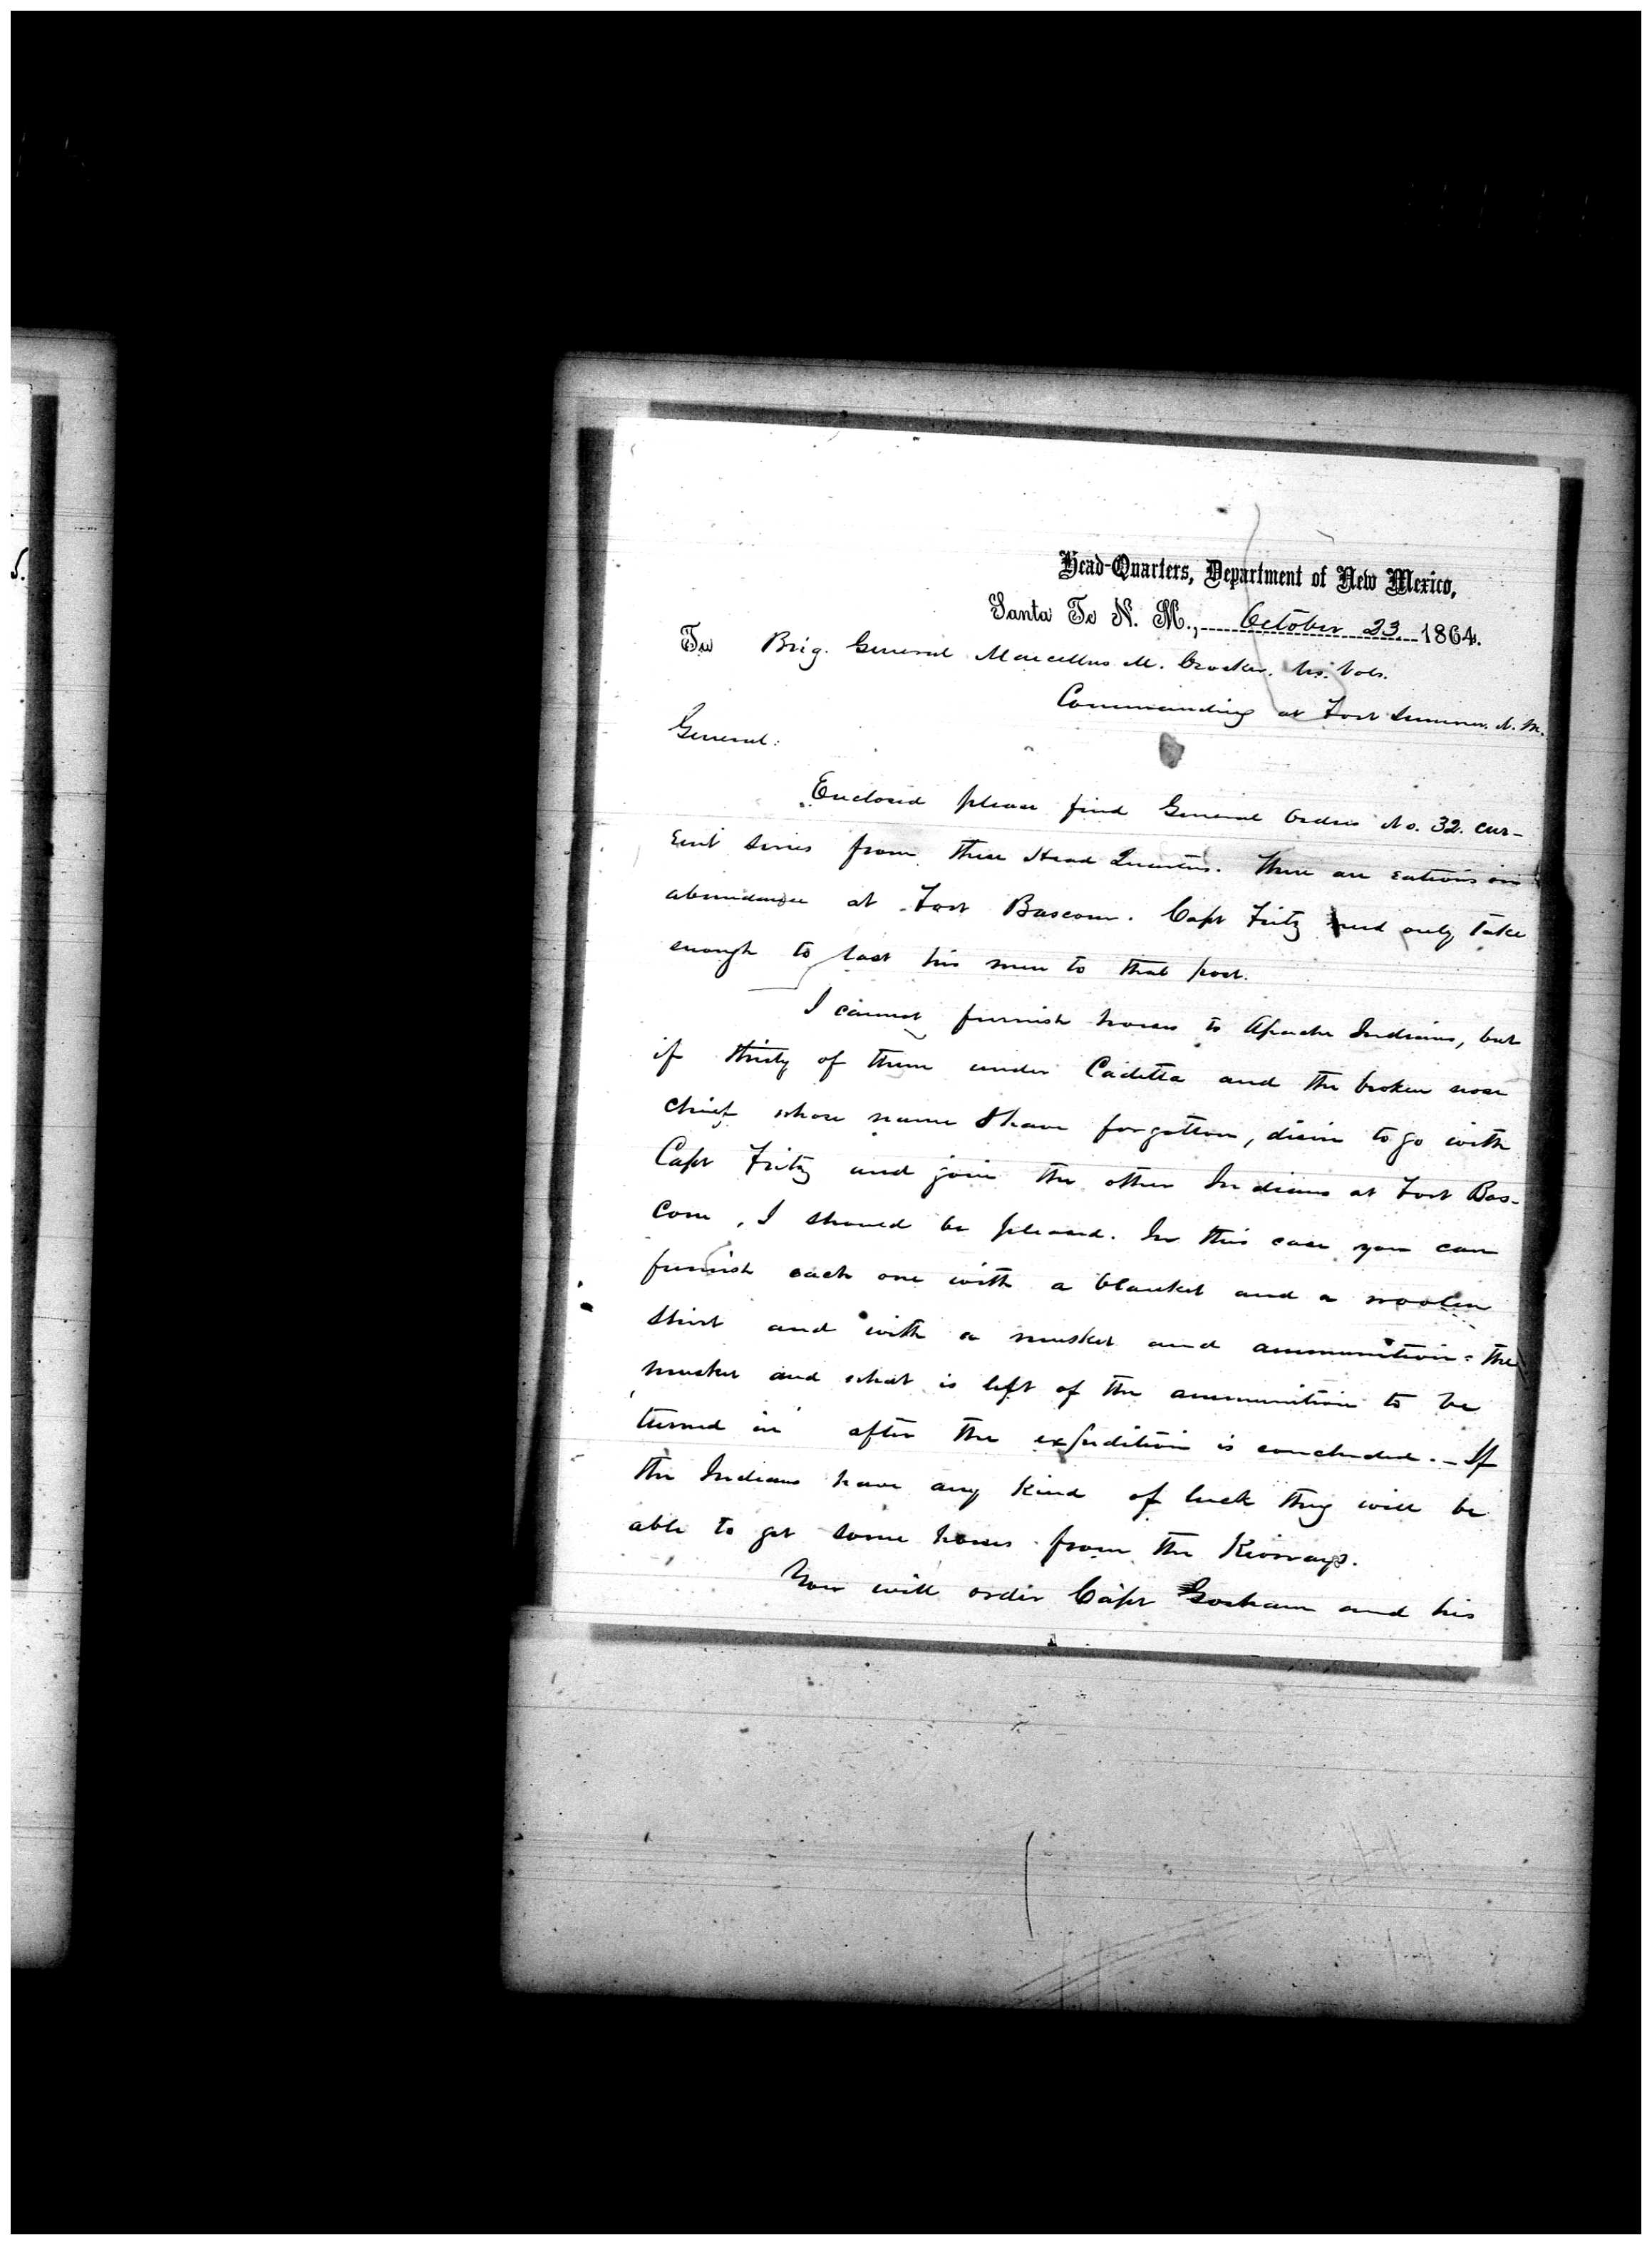 Head-Quarters, Department of New Mexico,
Santa Fe N. M., October 23 1864.
To Brig. General Marcellus M. Crocker. U.S. Vols.
Commanding at Fort Sumner. N. M.
General:
Enclosed please find General Orders No. 32. cur-
rent series from these Head Quarters. There are rations in
abundance at Fort Bascom. Capt Fritz need only take
enough to last his men to that post.
I cannot furnish horses to Apache Indians, but
if thirty of them under Cadetta and the broken nose
chief whose name I have forgotten, desire to go with
Capt Fritz and join the other Indians at Fort Bas-
com, I should be pleased. In this case you can
furnish each one with a blanket and a woolen
shirt and with a musket and ammunition: the
musket and what is left of the ammunition to be
'turned in' after the expedition is concluded. - If
the Indians have any kind of luck they will be
able to get some horses from the Kioways.
You will order Capt Gorham and his